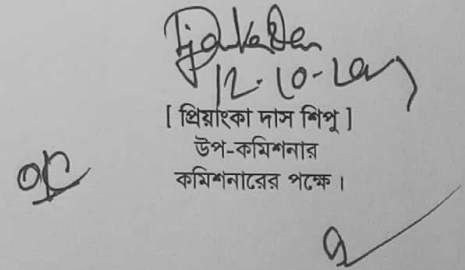 12-10-
[ প্রিয়াংকা দাস শিপু ]
উপ-কমিশনার
কমিশনারের পক্ষে ।